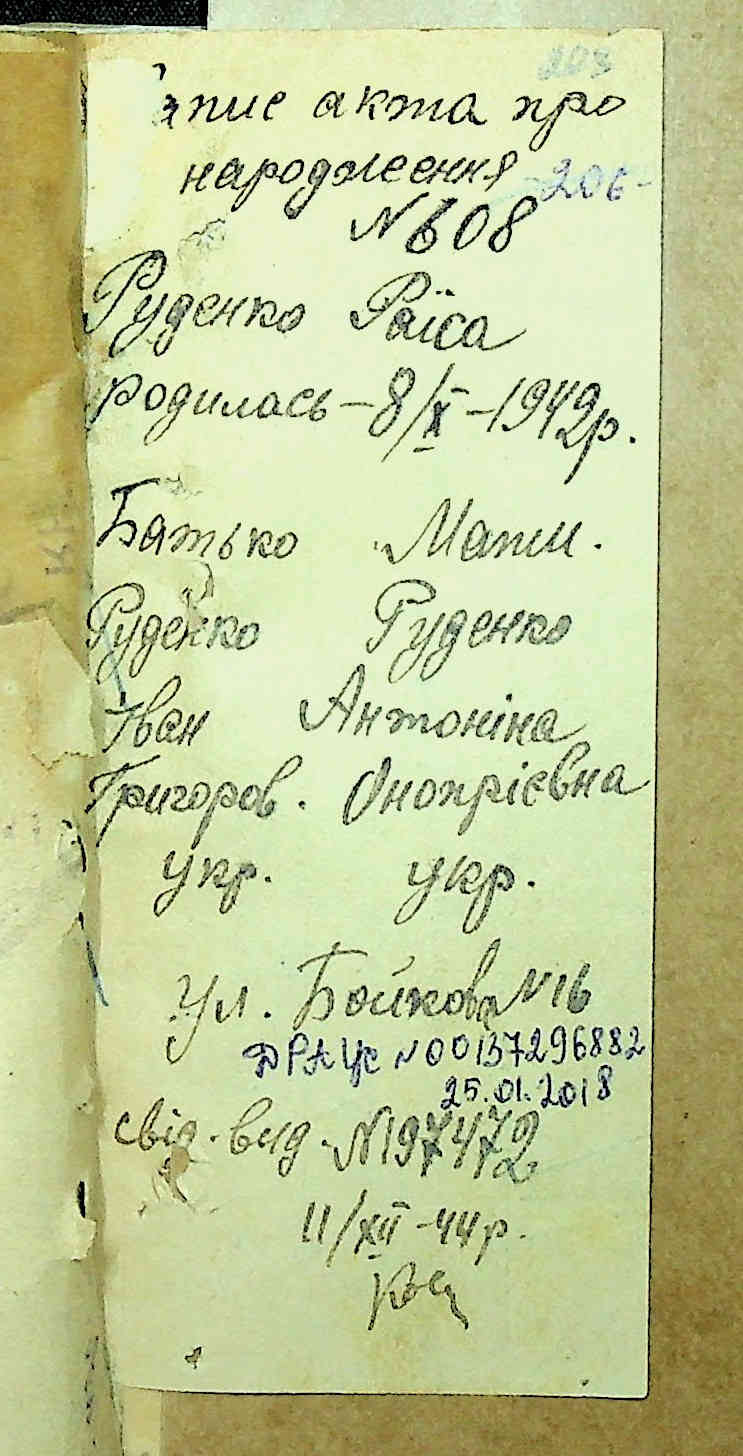 203
Запис акта про
народження
206
№608
Руденко Раїса
родилась – 8/X – 1942р.
Батько Мати.
Руденко Руденко
Іван Антоніна
Григоров. Онопрієвна
укр. укр.
Ул. Бойкова №16
ДРАЦС №00137296882
25.01.2018
свід. вид. №197472
11/XII – 44р.